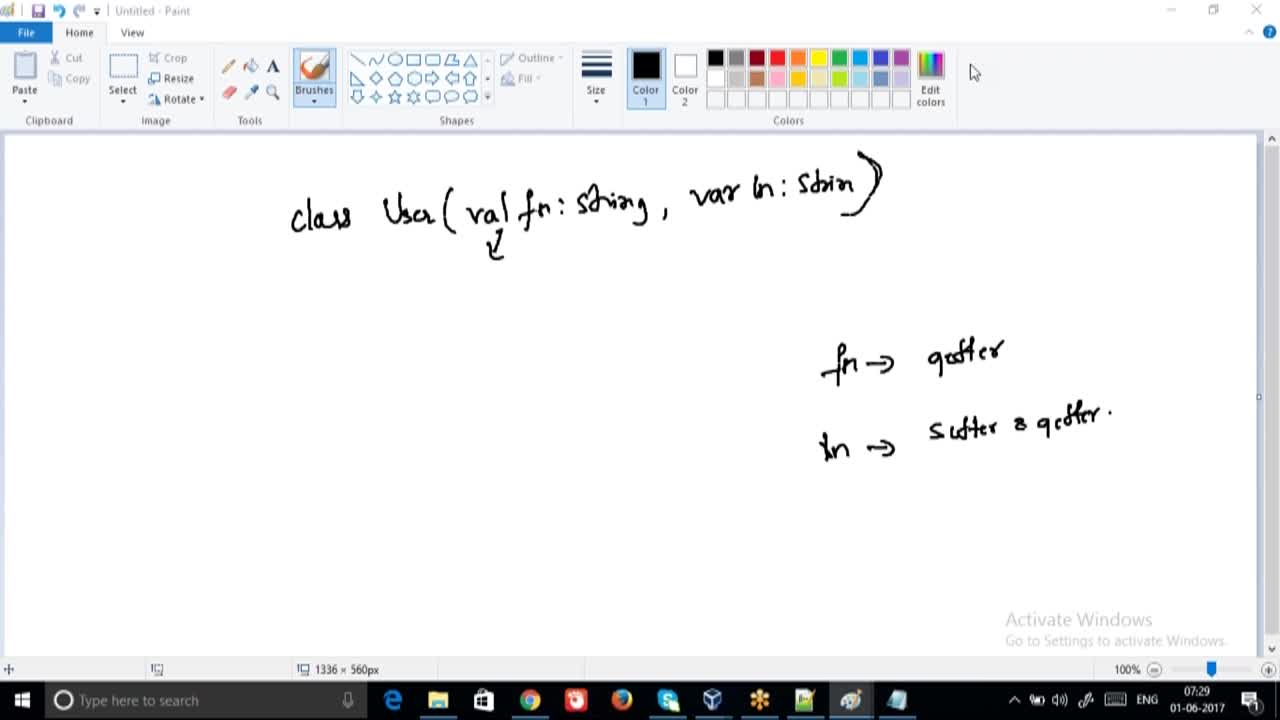 Untitled - Paint
File Home View
Cut
Copy
Paste
Clipboard
Crop
Resize
Rotate
Select
Image
Tools
Brushes
Outline
Fill
Shapes
Size
Color 1
Color 2
Edit colors
Colors
class User (val fn: String, var ln: Strin)
fn → getter
ln → setter & getter.
Activate Windows
Go to Settings to activate Windows.
1336 × 560px
100%
Type here to search
ENG
07:29
01-06-2017
1